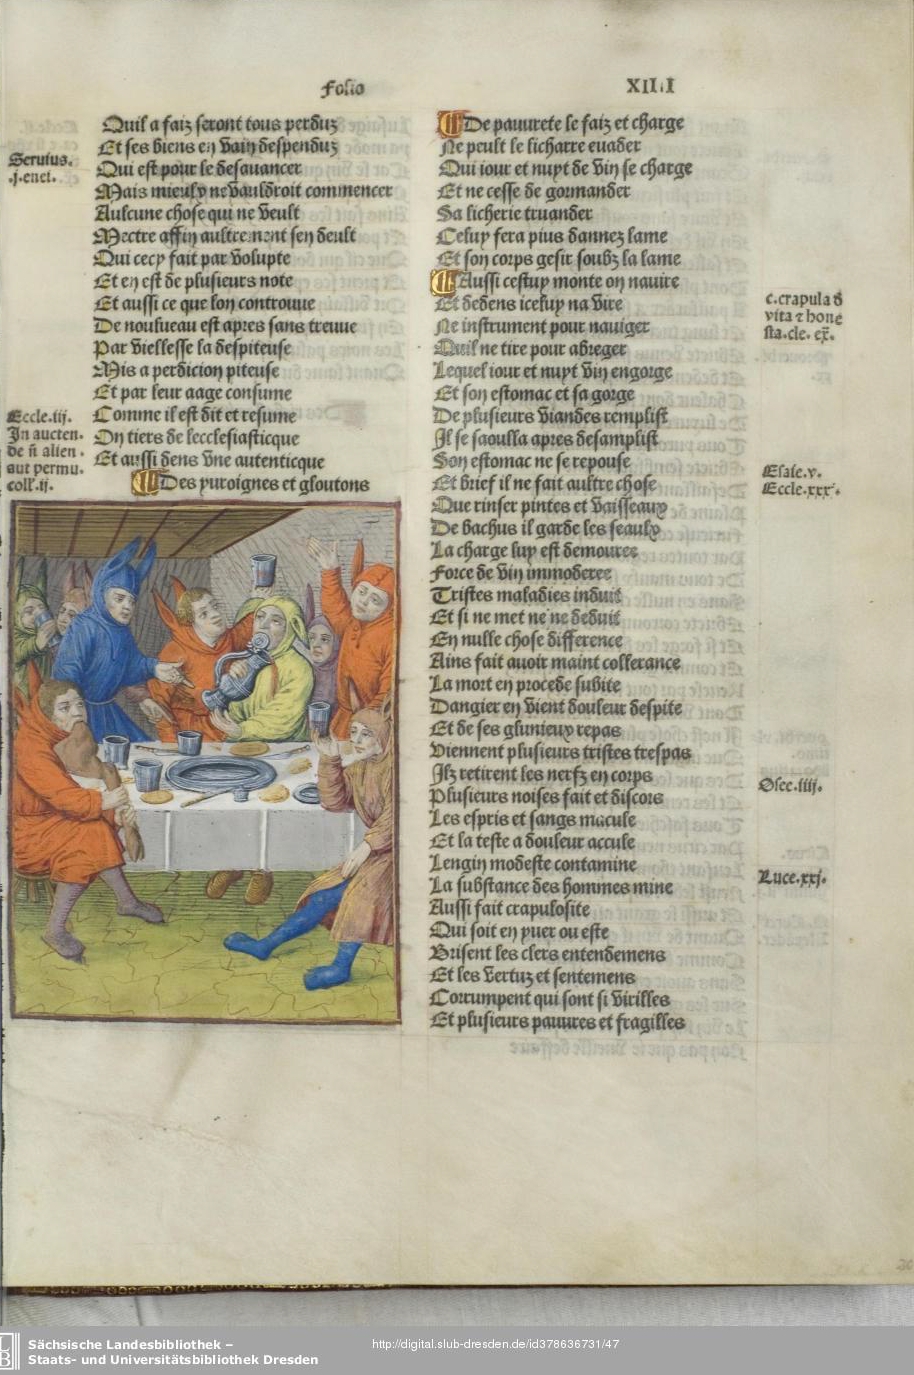 Folio
XIIII
Quil a faiz seront tous perduz
Et ses biens en vain despenduz
Qui est pour le desauancer
Mais mieulx ne vauldroit commencer
Aulcune chose qui ne veult
Mectre affin aultrement sen deult
Qui cecy fait par volupte
Et en est de plusieurs note
Et aussi ce que lon controuue
De nouueau est apres sans treuue
Par viellesse la despiteuse
Mis a perdicion piteuse
Et par leur aage consume
Comme il est dit et resume
On tiers de lecclesiasticque
Et aussi dens vne autenticque
Des yuroignes et gloutons
Seruius.
.j.enei.
Eccle.iij.
In aucten.
de ñ alien.
aut permu.
coll.ij.
De pauurete le faiz et charge
Ne peult le licharre euader
Qui iour et nuyt de vin se charge
Et ne cesse de gormander
Sa licherie truander
Celuy fera plus dannez lame
Et son corps gesir soubz la lame
Aussi cestuy monte on nauire
Et dedens iceluy na vire
Ne instrument pour nauiger
Quil ne tire pour abreger
Lequel iour et nuyt vin engorge
Et son estomac et sa gorge
De plusieurs viandes remplist
Il se saoulla apres desamplist
Son estomac ne se repouse
Et brief il ne fait aultre chose
Que rinser pintes et vaisseaux
De bachus il garde les seaulx
La charge luy est demouree
Force de vin immoderee
Tristes maladies induit
Et si ne met ne ne deduit
En nulle chose difference
Ains fait auoir maint collerance
La mort en procede subite
Dangier en vient douleur despite
Et de ses glunieux repas
Viennent plusieurs tristes trespas
Ilz retirent les nerfz en corps
Plusieurs noises fait et discors
Les espris et sangs macule
Et la teste a douleur accule
Lengin modeste contamine
La substance des hommes mine
Aussi fait crapulosite
Qui soit en yuer ou este
Brisent les clers entendemens
Et les vertuz et sentemens
Corrumpent qui sont si virilles
Et plusieurs pauures et fragilles
c.crapula d
vita ⁊ hone
sta.cle. ex̄.
Esaie.v.
Eccle.xxx.
Osee.iiij.
Luce.xxj.
Sächsische Landesbibliothek –
Staats- und Universitätsbibliothek Dresden
http://digital.slub-dresden.de/id378636731/47